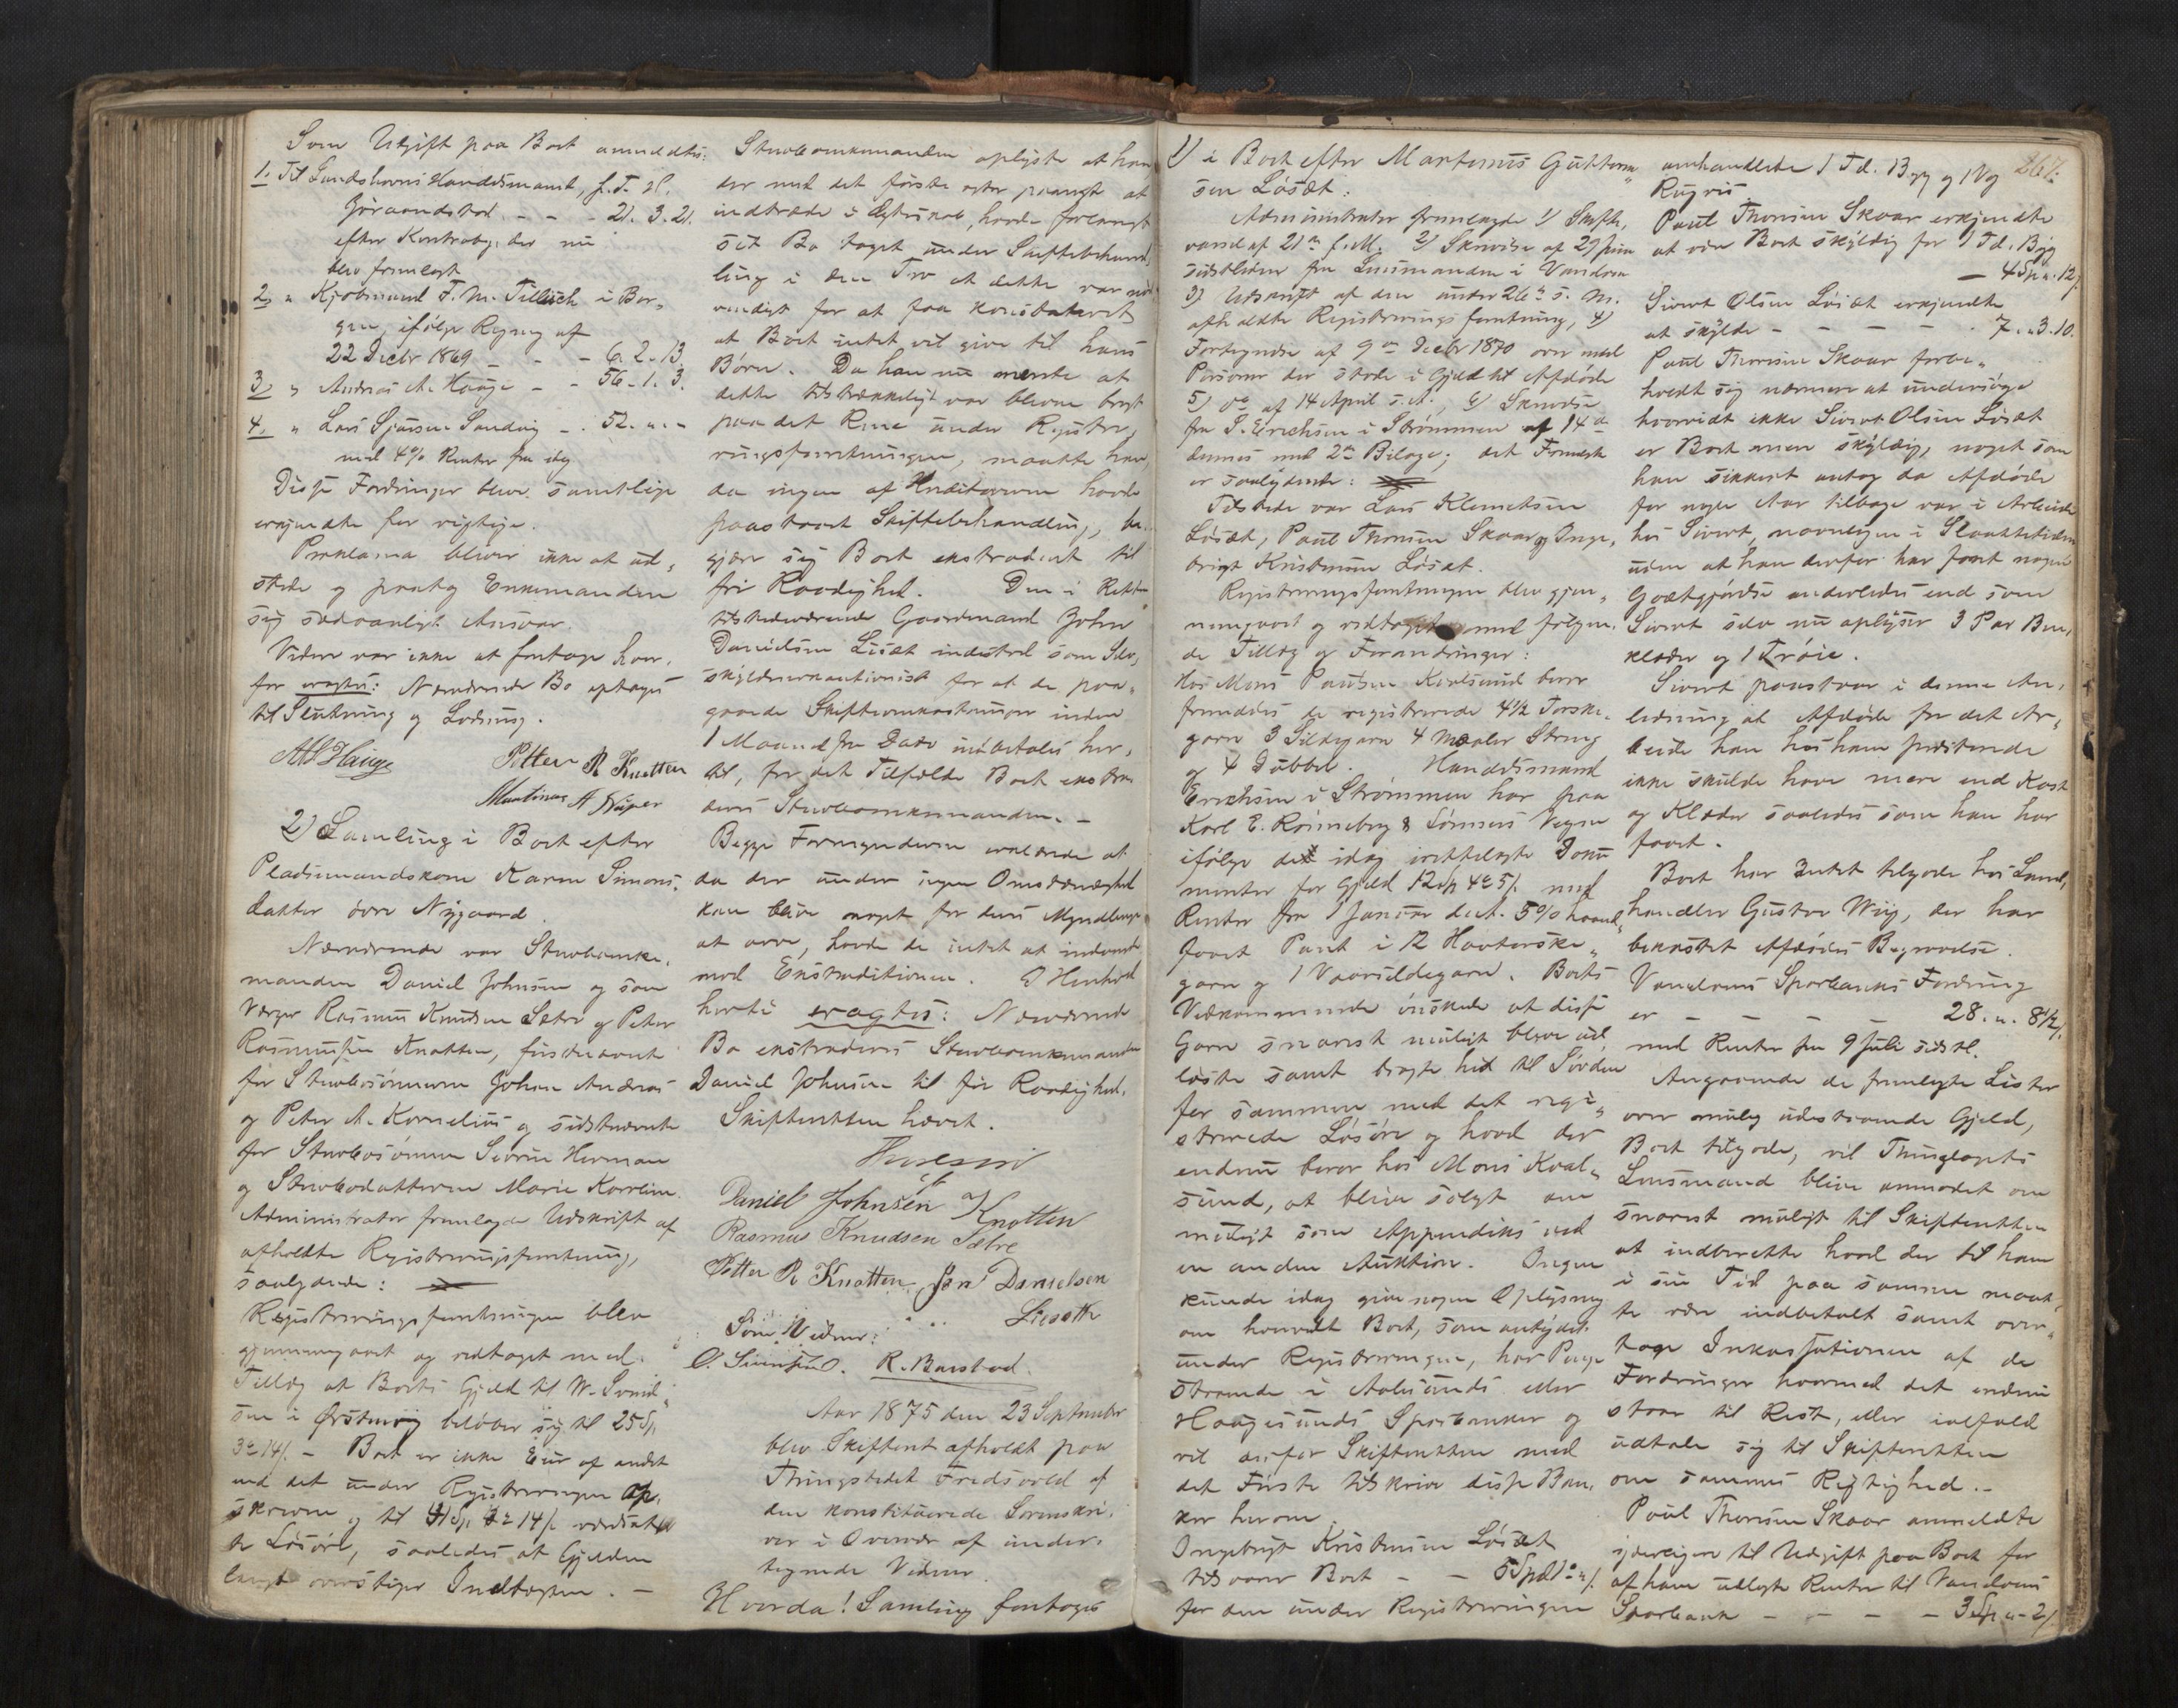 Som Udgift paa Boet anmeldtes:
1. Til Landshovni Handelsmand, J. T. H.
Jøraandstad - - - 21. 3. 21.
efter Kontrabog, der nu
blev fremlagt
2, " Kjøbmand F. M. Tillisch i Ber-
gen, ifølge Regning af
22 Decbr 1869 - - - 6. 2. 13.
3, " Andreas A. Hauge - - 56. 1. 3.
4, " Lars Sjursen Sandvig - . 52. " -
med 4% Renter fra idag
Disse Fordringer blev samtlige
erkjendte for rigtige.
Proklama bliver ikke at ud-
stede og paatog Enkemanden
sig sædvanligt Ansvar.
Videre var ikke at foretage hvor-
for eragtes: Nærværende Bo optages
til Slutning og Lodning.
AA Hauge Petter R Knotten
Martinus A
2) Samling i Boet efter
Pladsmandskone Karen Simons-
datter øvre Nygaard.
Nærværende var Stervboenke-
manden Daniel Johnsen og som
Værger Rasmus Knudsen Sætre og Peter
Rasmussen Knotten, førstnævnte
for Stervbosønnerne Johan Andreas
og Peter A. Kornelius og sidstnævnte
for Stervbosønnen Severin Herman
og Stervbodatteren Marie Karoline.
Administrator fremlagde Udskrift af
afholdte Registreringsforretning,
saalydende:
Registreringsforretningen blev
gjennemgaaet og vedtaget med
Tillæg at Boets Gjeld til W. Svend-
sen i Ørstenvig beløber sig til 25 Sp.
3 14 /. - Boet er ikke Eier af andet
end det under Registreringen op-
skrevne og til 14 /. værdsat-
te Løsøre, saaledes at Gjelden
langt overstiger Indtægten. -
Stervboenkemanden oplyste at han
der med det første agter paanyt at
indtræde i Ægteskab, havde forlangt
sit Bo taget under Skiftebehand-
ling i den Tro at dette var nød-
vendigt for at faa konstateret
at Boet intet vil give til hans
Børn. Da han nu mente at
dette tilstrækkeligt var blevne bragt
paa det Rene under Registre-
ringsforretningen, maatte han,
da ingen af Kreditorerne havde
paastaaet Skiftebehandling, be-
gjære sig Boet extraderet til
fri Raadighed. Den i Retten
tilstedeværende Gaardmand John
Danielsen Liset indestod som Selv-
skyldnerkautionist for at de paa-
gaaende Skifteomkostninger inden
1 Maaned fra Dato indbetales her-
til, for det Tilfælde Boet extra-
deres Stervboenkemanden. -
Begge Formynderne erklærede at
da der under ingen Omstændighed
kan blive noget for deres Myndlinge
at arve, havde de intet at indvende
mod Extraditionen. I Henhold
hertil eragtes: Nærværende
Bo extraderes Stervboenkemanden
Daniel Johnsen til fri Raadighed.
Skifteretten hævet.
Daniel Johnsen af Knotten
Rasmus Knudsen Sætre
Petter R Knotten Jon Danielsen
Liesette
Som Vidner:
O. Sivertsen. R. Barstad.
Aar 1875 den 23 September
blev Skifteret afholdt paa
Thingstedet Fredsvold af
den konstituerede Sorenskri-
ver i Overvær af under-
tegnede Vidner.
Hvorda! Samling foretoges
267.
1) i Boet efter Martinus Guttorm-
sen Løsæt.
Administrator fremlagde 1) Skifte-
varsel af 21de f. M. 2) Skrivelse af 29 Juni
sidstleden fra Lensmanden i Vandven
3) Udskrift af den under 26de s. M.
afholdte Registreringsforretning, 4)
Fortegnelse af 9de Decbr 1870 over med
Personer der stode i Gjeld til Afdøde
5) do af 14 April s. A., 6) Skrivelse
fra P. Erichsen i Strømmen af 14de
dennes med 2de Bilage; det Fremlagte
er saalydende:
Tilstede var Lars Klemetsen
Løsæt, Paul Thorsen Skaar og Inge-
brigt Kristensen Løsæt.
Registreringsforretningen blev gjen-
nemgaaet og vedtaget med følgen-
de Tillæg og Forandringer:
Hos Mons Paulsen Kvalsund beror
fremdeles de registrerede 4½ Torske-
garn 3 Sildegarn 4 Maaler Streng
og 4 Dubbel. Handelsmand
Erichsen i Strømmen har paa
Karl E. Rønneberg & Sønners Vegne
ifølge de idag irettelagte Doku-
menter for Gjeld 12 Sp 4 5/. med
Renter fra 1 Januar d. A. 5% haand-
faaet Pant i 12 Havtorske-
garn og 1 Vaarsildegarn. Boets
Vedkommende ønskede at disse
Garn snarest muligt bleve ud-
løste samt bragte hid til Søvden
for sammen med det regi-
strerede Løsøre og hvad der
endnu beror hos Mons Kval-
sund, at blive solgt om
muligt som Appendiks ved
en anden Auktion. Ingen
kunde idag give nogen Oplysning
om hvorvidt Boet, som antydet
under Registreringen, har Penge
staaende i Aalesunds eller
Haugesunds Sparbanker og
vil derfor Skifteretten med
det Første tilskrive disse Ban-
ker herom.
Ingebrigt Kristensen Løsæt
tilsvarer Boet - -
for den under Registreringen
omhandlede 1 Td. Byg og 1 Vog
Rugris.
Paul Thorsen Skaar erkjendte
at være Boet skyldig for 1 Td. Byg
- 4 Sp. ". 12/.
Sivert Olsen Løsæt erkjendte
at skylde - - - - 7. "3. 10.
Paul Thorsen Skaar forbe-
holdt sig nærmere at undersøge
hvorvidt ikke Sivert Olsen Løsæt
er Boet mere skyldig, noget som
han sikkert antog da Afdøde
for nogle Aar tilbage var i Arbeide
hos Sivert, navnligen i Slaattetiden
uden at han derfor har faaet nogen
Godtgjørelse anderledes end som
Sivert selv nu oplyser 3 Par Ben-
klæder og 1 Trøie.
Sivert paastod i denne An-
ledning at Afdøde for det Ar-
beide han hos ham præsterede
ikke skulde have mere end Kost
og Klæder saaledes som han har
faaet.
Boet har Intet tilgode hos Land-
handler Gustav Wiig, der har
bekostet Afdødes Begravelse.
Vandvens Sparebanks Fordring
er - - - - 28. ". 8½/.
med Renter fra 9 Juli sidstl.
Angaaende de fremlagte Lister
over mulig udestaaende Gjeld,
Boet tilgode, vil Thinglagets
Lensmand blive anmodet om
snarest muligt til Skifteretten
at indberette hvad der til ham
i sin Tid paa samme maat-
te være indbetalt samt over-
tage Inkassationen af de
Fordringer hvormed det endnu
staar til Rest, eller ialfald
udtale sig til Skifteretten
om sammes Rigtighed. -
Paul Thorsen Skaar anmeldte
yderligere til Udgift paa Boet for
af ham udlagte Renter til Vandvens
Sparbank - - - - 3 Sp " - 2/.